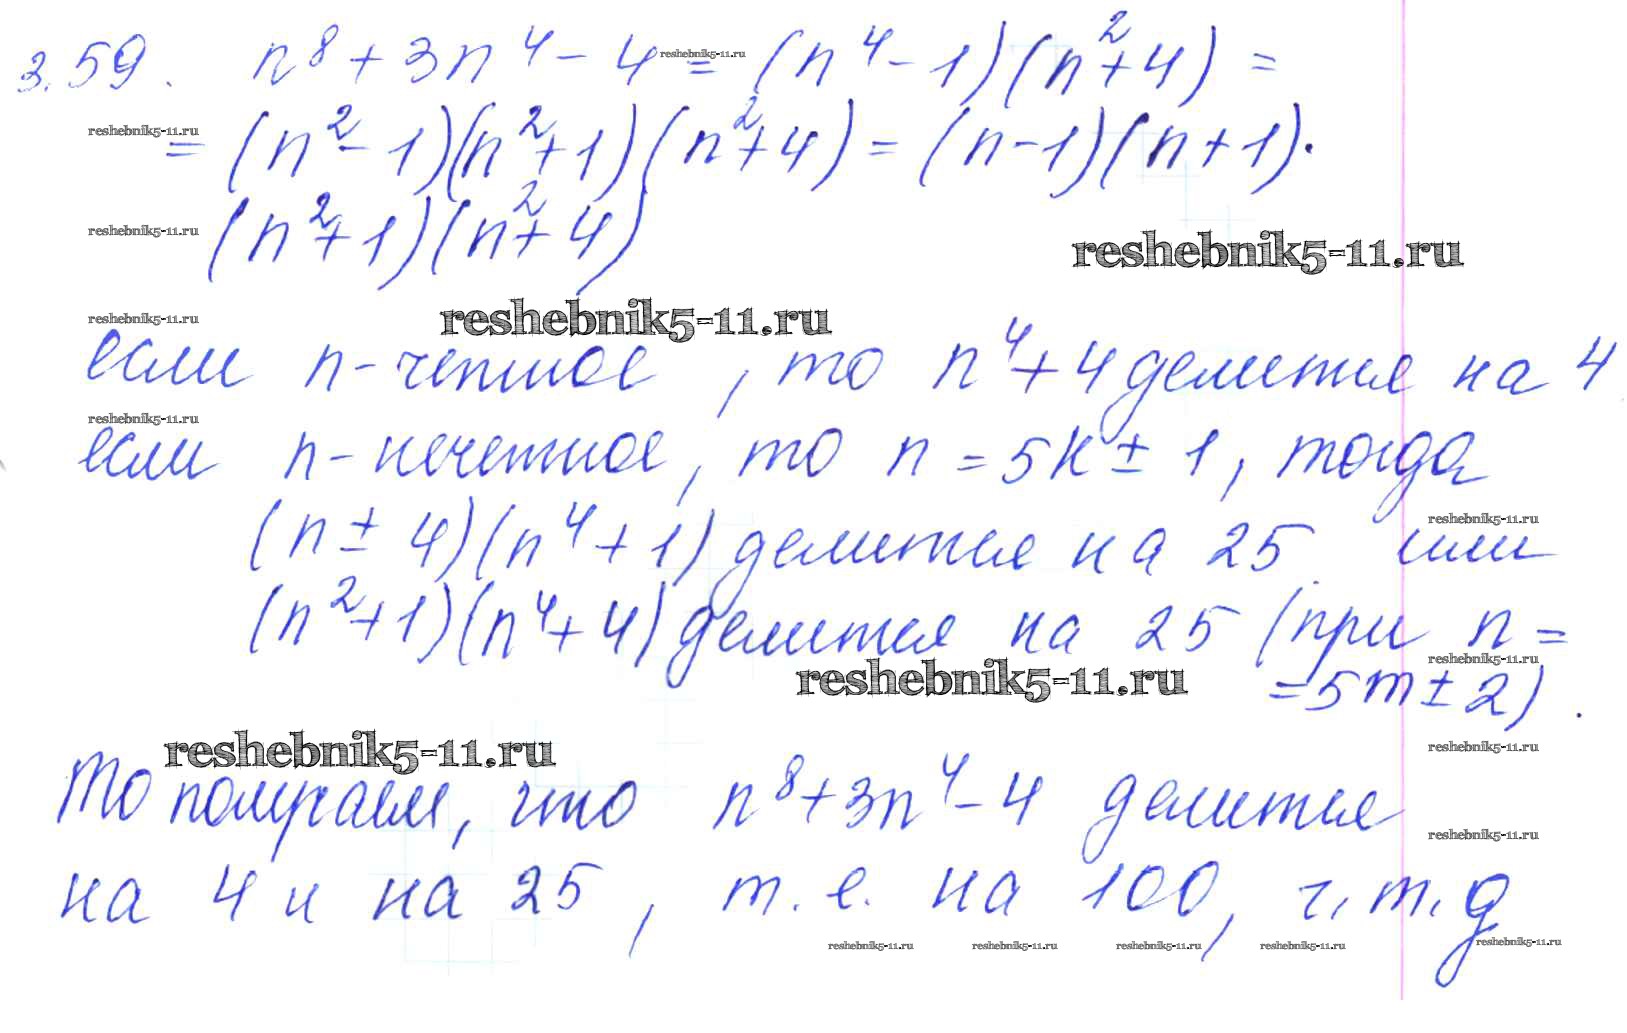 3.59. n⁸ + 3n⁴ - 4 = (n⁴ - 1)(n² + 4) =
reshebnik5-11.ru
= (n² - 1)(n² + 1)(n² + 4) = (n - 1)(n + 1)·
reshebnik5-11.ru
(n² + 1)(n² + 4)
reshebnik5-11.ru
reshebnik5-11.ru
reshebnik5-11.ru
reshebnik5-11.ru
если n - четное, то n⁴ + 4 делится на 4
reshebnik5-11.ru
если n - нечетное, то n = 5k ± 1, тогда
reshebnik5-11.ru
(n ± 4)(n⁴ + 1) делится на 25 или
(n² + 1)(n⁴ + 4) делится на 25 (при n =
reshebnik5-11.ru
reshebnik5-11.ru
= 5m ± 2).
reshebnik5-11.ru
reshebnik5-11.ru
То получаем, что n⁸ + 3n⁴ - 4 делится
reshebnik5-11.ru
на 4 и на 25, т. е. на 100, ч. т. д
reshebnik5-11.ru reshebnik5-11.ru reshebnik5-11.ru reshebnik5-11.ru reshebnik5-11.ru